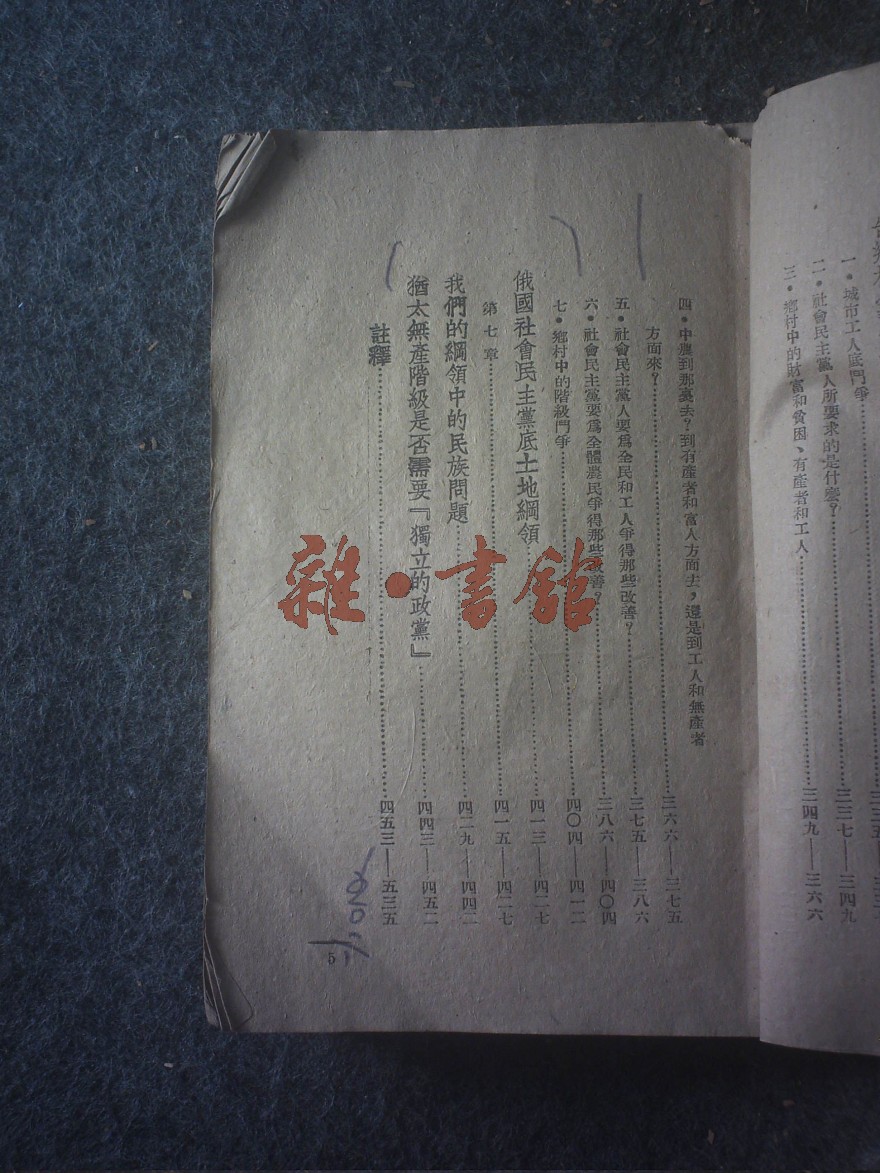 一・城市工人底鬥爭
二・社會民主黨人所要求的是什麼?……三三七—三四九
三・鄉村中的財富和貧困、有產者和工人……三四九—三六六
四・中農到那裏去?到有產者和富人方面去,還是到工人和無產者
方面來?……三六六—三七五
五・社會民主黨人要爲全民和工人爭得那些改善?……三七五—三八六
六・社會民主黨要爲全體農民爭得那些改善?……三八六—四〇四
七・鄉村中的階級鬥爭……四〇四—四一二
俄國社會民主黨底土地綱領……四一三—四二七
第七章……四一五—四二七
我們的綱領中的民族問題……四二九—四四二
猶太無產階級是否需要『獨立的政黨』……四四三—四五二
註釋……四五三—五三五
5
雜・書館